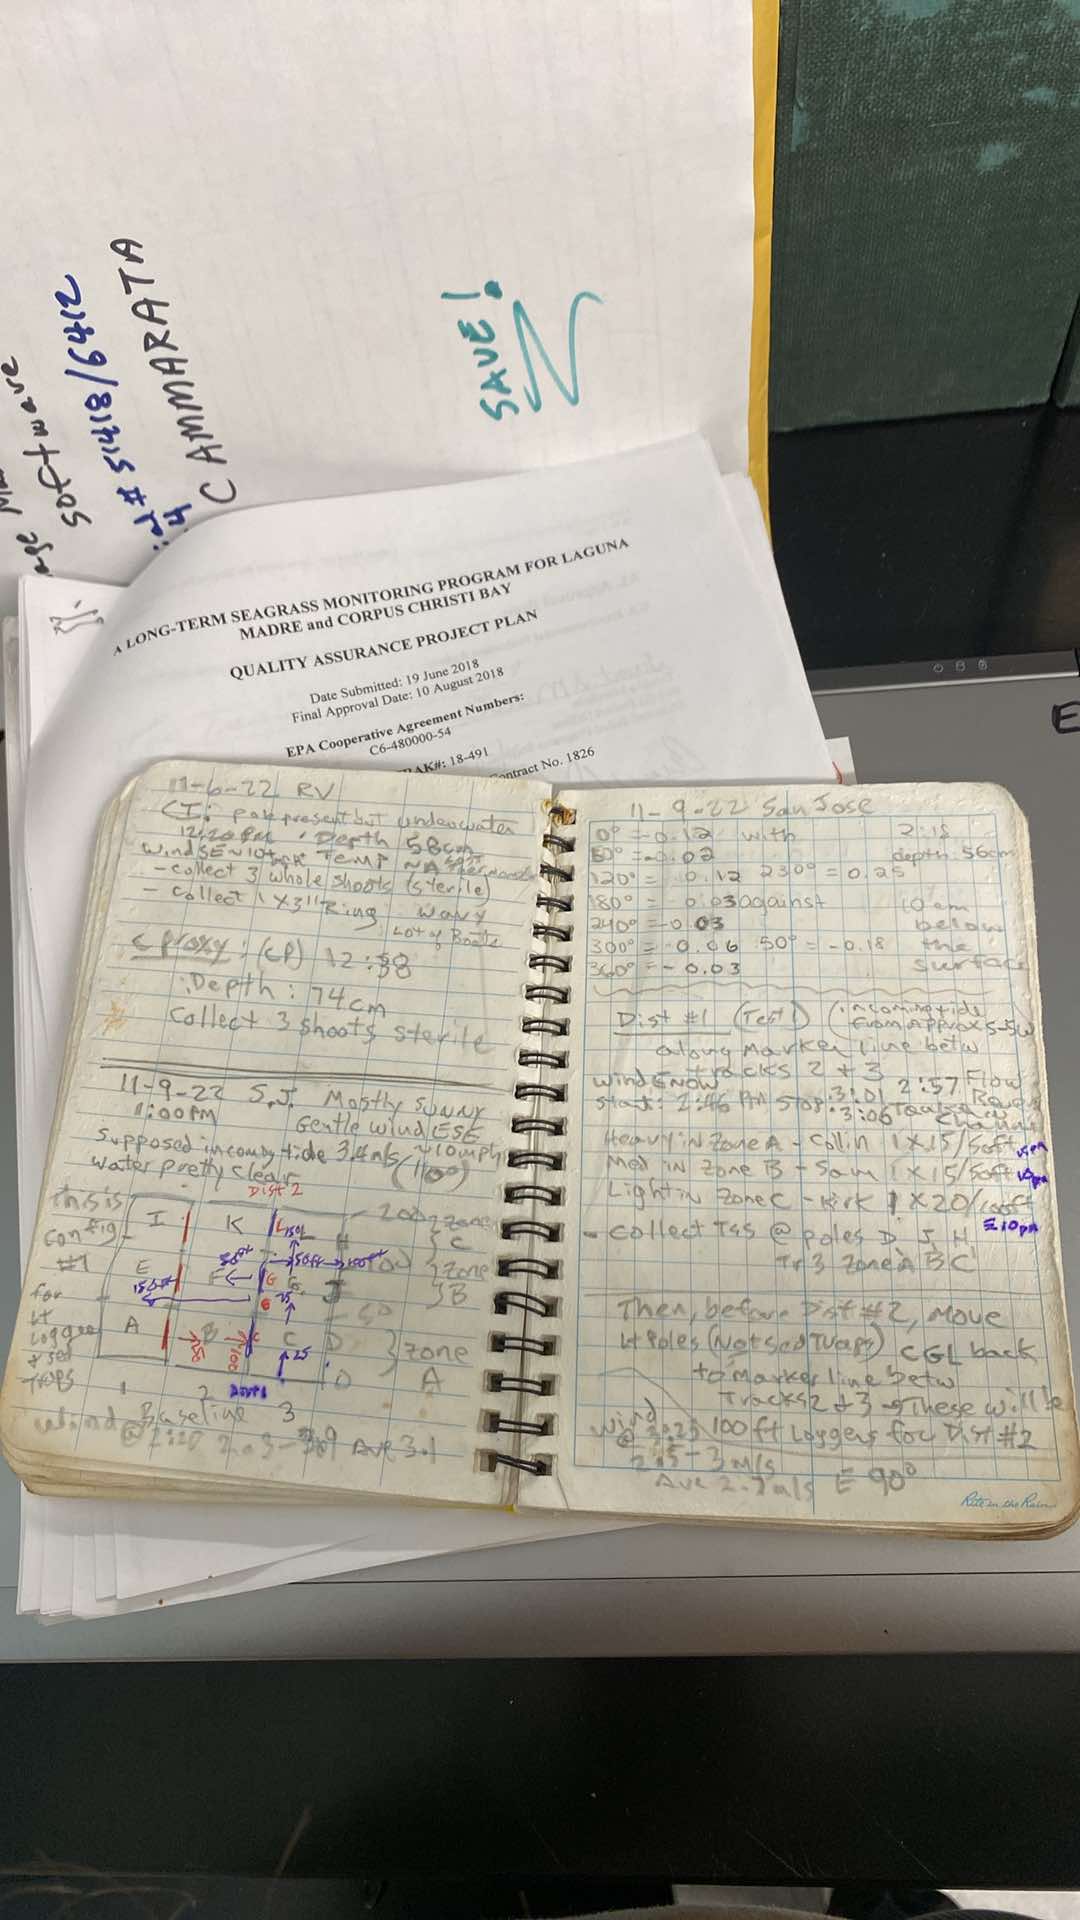 software
# 51418/6412
CAMMARATA
SAVE!
A LONG-TERM SEAGRASS MONITORING PROGRAM FOR LAGUNA
MADRE and CORPUS CHRISTI BAY
QUALITY ASSURANCE PROJECT PLAN
Date Submitted: 19 June 2018
Final Approval Date: 10 August 2018
EPA Cooperative Agreement Numbers:
C6-480000-54
18-491
Contract No. 1826
E
11-6-22 RV
CI: pole present but underwater
Depth 58cm
Wind SE Temp
- collect 3 whole shoots (sterile)
- collect 1 x 3" Ring wavy
Lot of Boats
C proxy: (CP)
Depth: 74cm
Collect 3 shoots sterile
11-9-22 S.J. Mostly sunny
1:00PM Gentle wind ESE
Supposed incoming tide 3.4m/s ~10mph
water pretty clear (110°)
Dist 2
this is
config
#1
for
Lt
Logger
& sed
traps
I K L
E F G J
A B C D
200 zone
C
zone
B
zone
A
1 2 3
Baseline
Wind @ 2:20 Ave 3.1
11-9-22 San Jose
0° = 0.12 with 2:18
60° = -0.02 depth 56cm
120° = 0.12 230° = 0.25
180° = -0.03 against 10 cm
240° = 0.03 below
300° = -0.06 50° = -0.18 the
360° = -0.03 surface
Dist #1 (Test 1) (incoming tide
from approx S-SW
along marker line betw
tracks 2 + 3
Wind E NOW 2:57 Flow
start: 2:46 PM Stop: 3:01
3:06
Heavy in Zone A - Colin 1 x 15/50ft
Med in Zone B - Sam 1 x 15/50ft
Light in Zone C - Kirk 1 x 20/100ft
- Collect TSS @ poles D J H
Tr 3 Zone A B C
Then, before Dist #2, move
Lt Poles (Not Sed Traps) CGL back
to marker line betw
Tracks 2 + 3 → These will be
100 ft Loggers for Dist #2
Wind
@ 2:25
2.5 - 3 m/s
Ave 2.7 m/s E 90°
Rite in the Rain